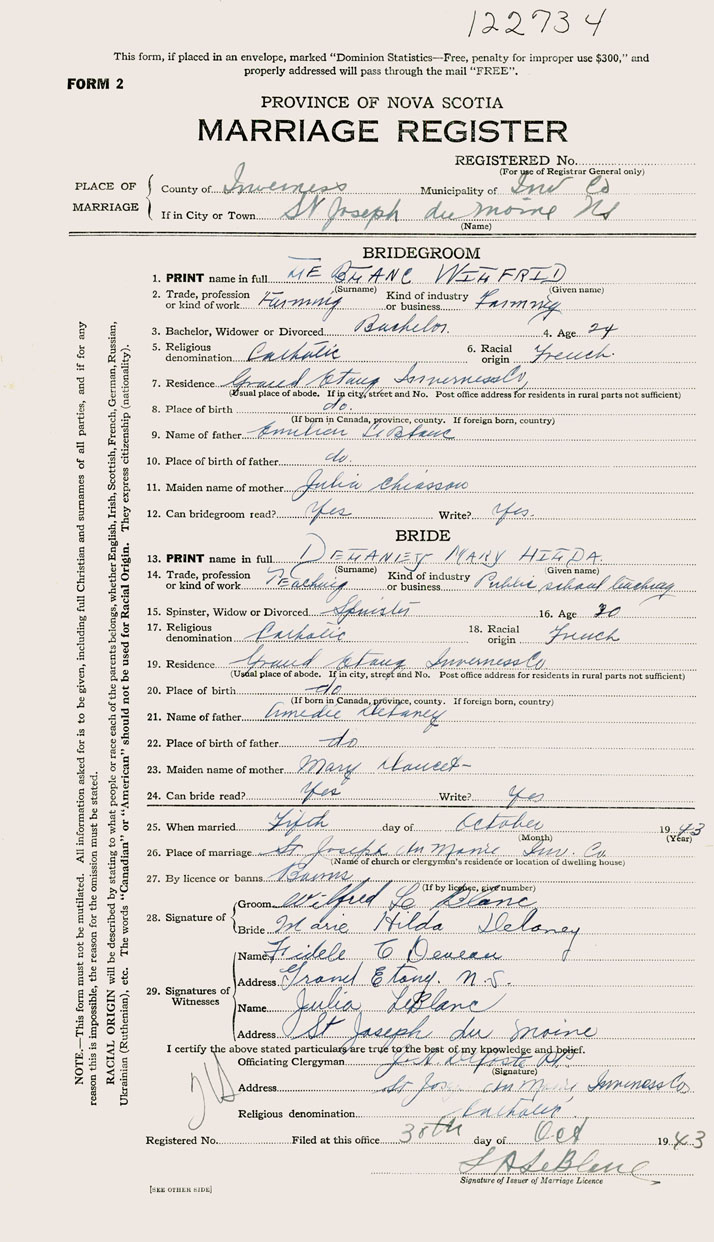 122734
This form, if placed in an envelope, marked "Dominion Statistics—Free, penalty for improper use $300," and
properly addressed will pass through the mail "FREE".
FORM 2
PROVINCE OF NOVA SCOTIA
MARRIAGE REGISTER
REGISTERED No.
(For use of Registrar General only)
PLACE OF MARRIAGE
County of Inverness Municipality of Inv Co
If in City or Town St Joseph du Moine NS
(Name)
BRIDEGROOM
1. PRINT name in full LE BLANC WILFRID
(Surname) (Given name)
2. Trade, profession or kind of work Farming Kind of industry or business Farming
3. Bachelor, Widower or Divorced Bachelor 4. Age 24
5. Religious denomination Catholic 6. Racial origin French
7. Residence Grand Etang Inverness Co,
(Usual place of abode. If in city, street and No. Post office address for residents in rural parts not sufficient)
8. Place of birth do.
(If born in Canada, province, county. If foreign born, country)
9. Name of father Emilien LeBlanc
10. Place of birth of father do.
11. Maiden name of mother Julia Chiasson
12. Can bridegroom read? Yes Write? Yes.
BRIDE
13. PRINT name in full DELANEY MARY HILDA
(Surname) (Given name)
14. Trade, profession or kind of work Teaching Kind of industry or business Public school teaching
15. Spinster, Widow or Divorced Spinster 16. Age 30
17. Religious denomination Catholic 18. Racial origin French
19. Residence Grand Etang Inverness Co
(Usual place of abode. If in city, street and No. Post office address for residents in rural parts not sufficient)
20. Place of birth do
(If born in Canada, province, county. If foreign born, country)
21. Name of father Amedie Delaney
22. Place of birth of father do
23. Maiden name of mother Mary Doucet
24. Can bride read? Yes Write? Yes
25. When married Fifth day of October 1943
(Month) (Year)
26. Place of marriage St Joseph du Moine Inv. Co
(Name of church or clergyman's residence or location of dwelling house)
27. By licence or banns Banns
(If by license, give number)
28. Signature of
Groom Wilfred Le Blanc
Bride Marie Hilda Delaney
29. Signatures of Witnesses
Name Fidele C Deveau
Address Grand Etang. N.S.
Name Julia LeBlanc
Address St Joseph du Moine
I certify the above stated particulars are true to the best of my knowledge and belief.
Officiating Clergyman
(Signature)
Address St Jos du Moine Inverness Co
Religious denomination Catholic
Registered No. Filed at this office 30th day of Oct 1943
Signature of Issuer of Marriage Licence
[SEE OTHER SIDE]
NOTE.—This form must not be mutilated. All information asked for is to be given, including full Christian and surnames of all parties, and if for any
reason this is impossible, the reason for the omission must be stated.
RACIAL ORIGIN will be described by stating to what people or race each of the parents belongs, whether English, Irish, Scottish, French, German, Russian,
Ukrainian (Ruthenian), etc. The words "Canadian" or "American" should not be used for Racial Origin. They express citizenship (nationality).